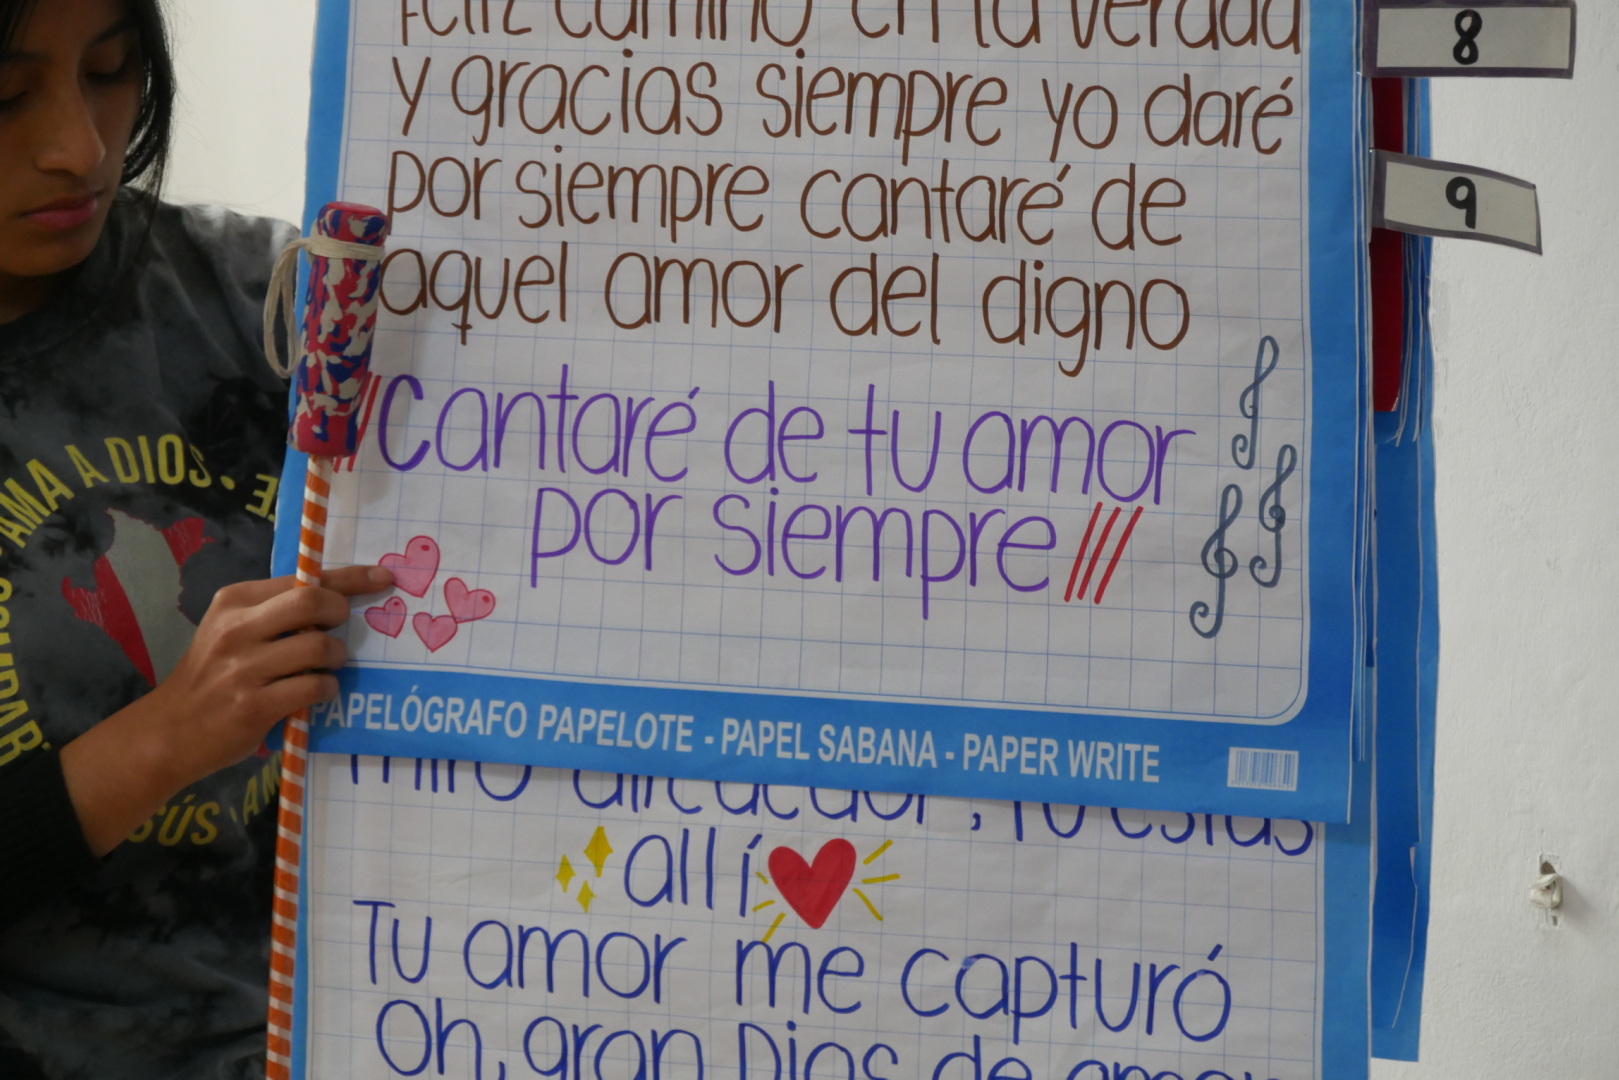 feliz camino en la verdad
y gracias siempre yo daré
por siempre cantaré de
aquel amor del digno
///Cantaré de tu amor
por siempre///
PAPELÓGRAFO PAPELOTE - PAPEL SABANA - PAPER WRITE
miro alrededor, Tú estás
allí
Tu amor me capturó
Oh, gran Dios de amor
8
9
AMA A DIOS •
JESÚS • AM